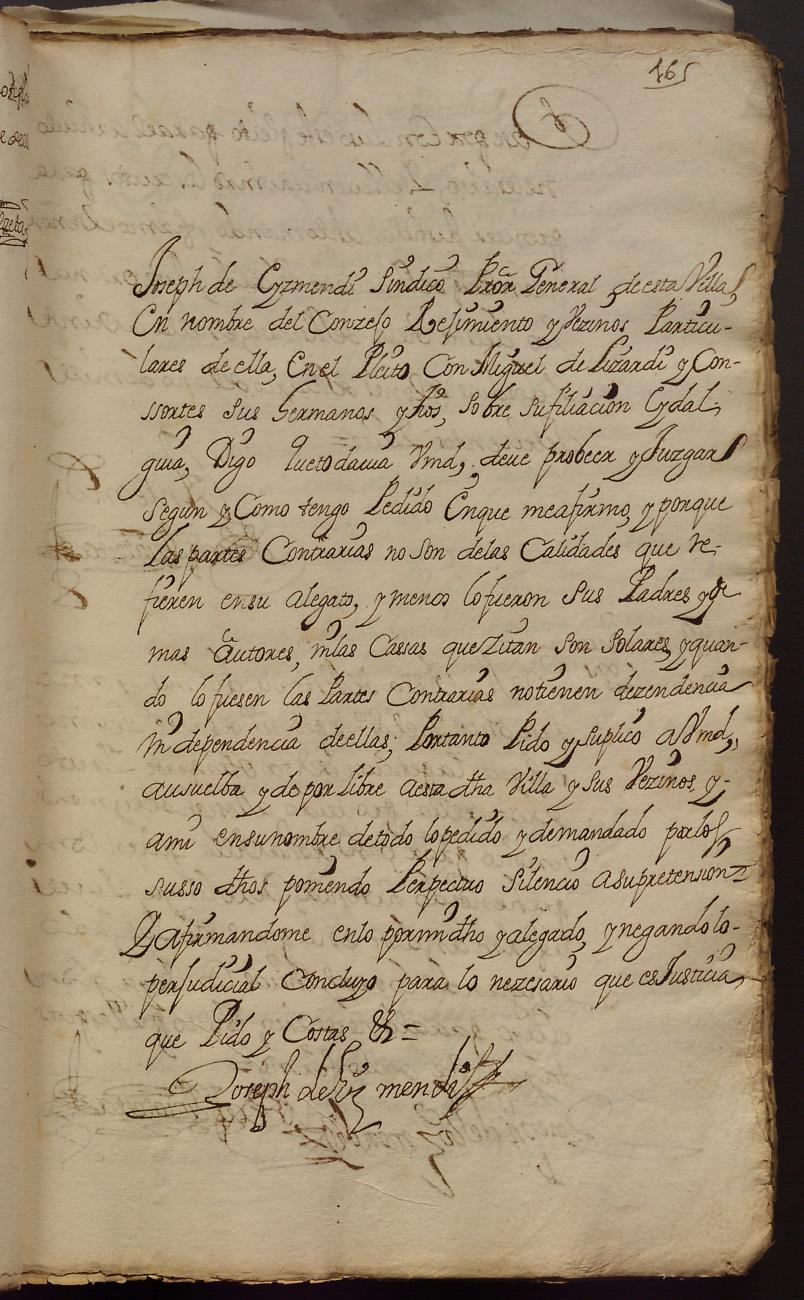 165
Joseph de Yzmendi Sindico Pror General de esta Villa,
En nombre del Conzejo Rejimiento y Vezinos Particu-
lares de ella, En el Pleito Con Miguel de Lizardi y Con-
ssortes sus hermanos y hos, sobre su filiacion Cydal-
guia, Digo que todavia Vmd, deve probeer y Juzgar
segun y Como tengo Pedido En que me afirmo, y porque
las partes Contrarias no son de las Calidades que re-
fieren en su alegato, y menos lo fueron sus Padres y de
mas autores, ni las Cassas que Zitan son solares, y quan-
do lo fuesen las Partes Contrarias no tienen dezendencia
ni dependencia de ellas; Por tanto Pido y suplico a Vmd,
ausuelba y de por libre a esta dha Villa y sus Vezinos, y-
a mi en su nombre de todo lo pedido y demandado por los
susso dhos poniendo Perpectuo silencio a su pretension=
Y afirmandome en lo por mi dho y alegado, y negando lo-
perjudicial Concluyo para lo nezesario que es Justicia,
que Pido y Costas &=
Joseph de Yzmendi